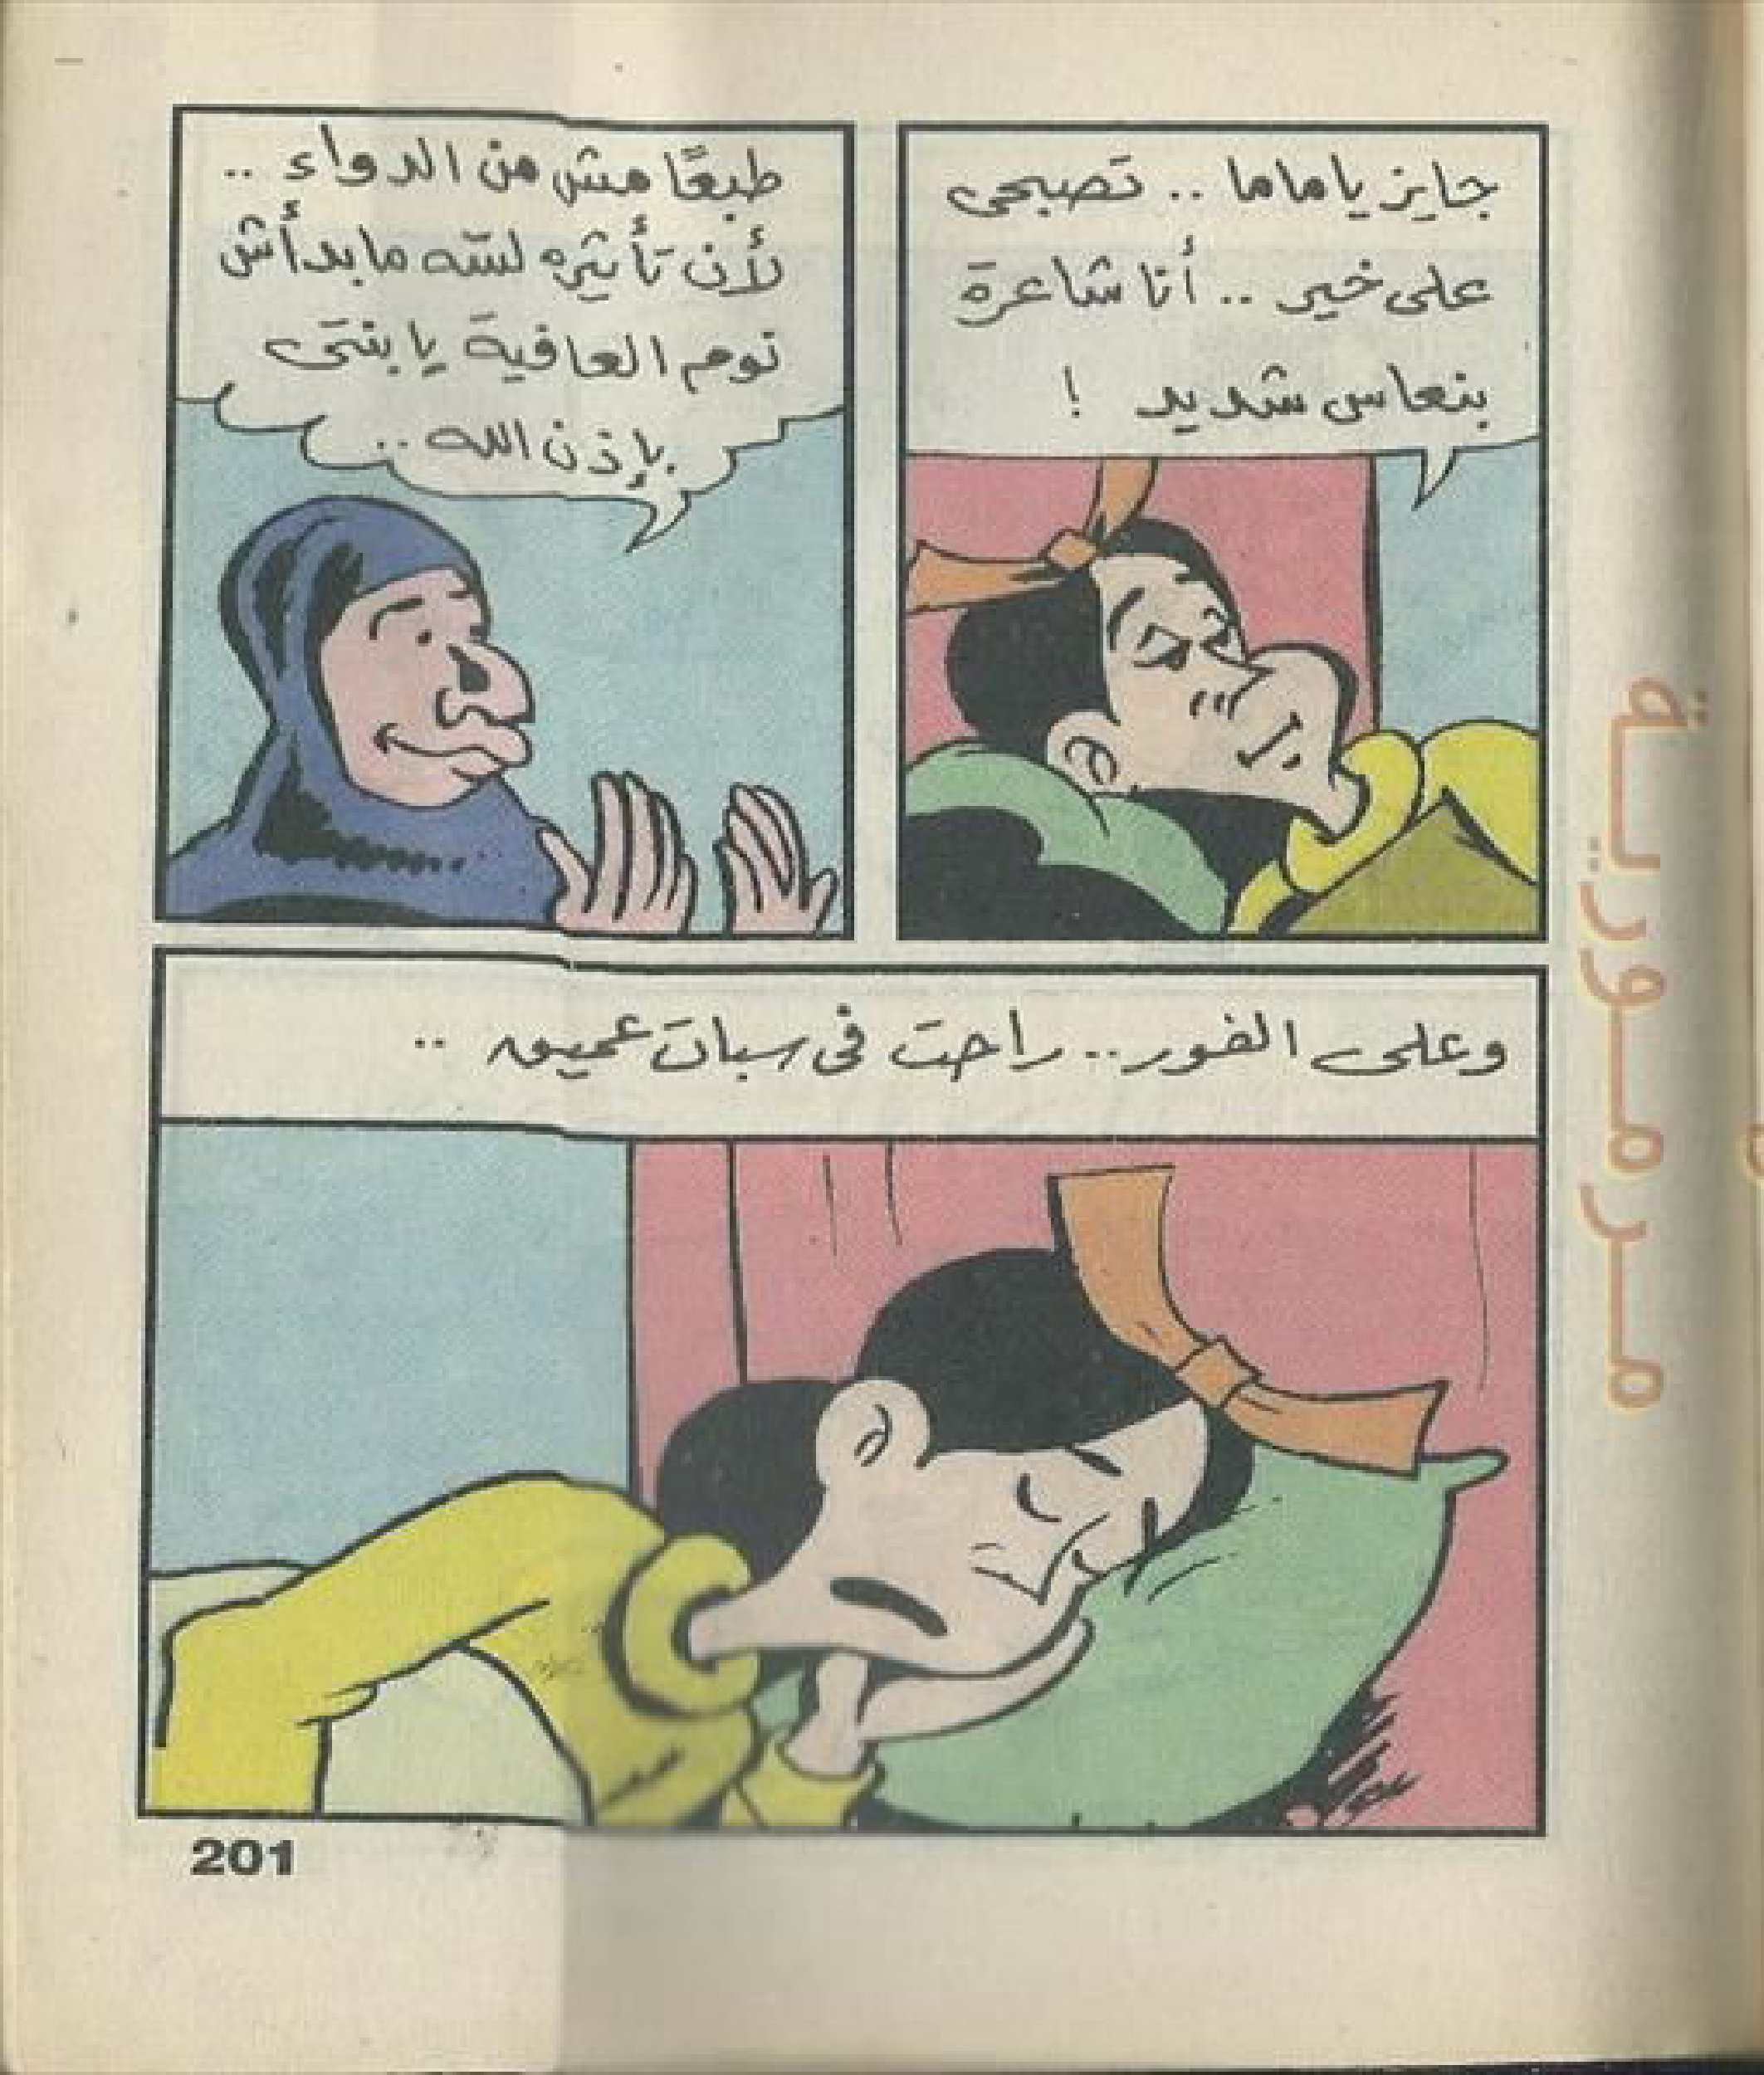 جايز ياماما .. تصبحى
على خير .. أنا شاعرة
بنعاس شديد !
طبعًا مش من الدواء ..
لأن تأثيره لسّه مابدأش
نوم العافية يابنتى
بإذن الله ..
وعلى الفور.. راحت فى سبات عميق ..
201
مرمورية